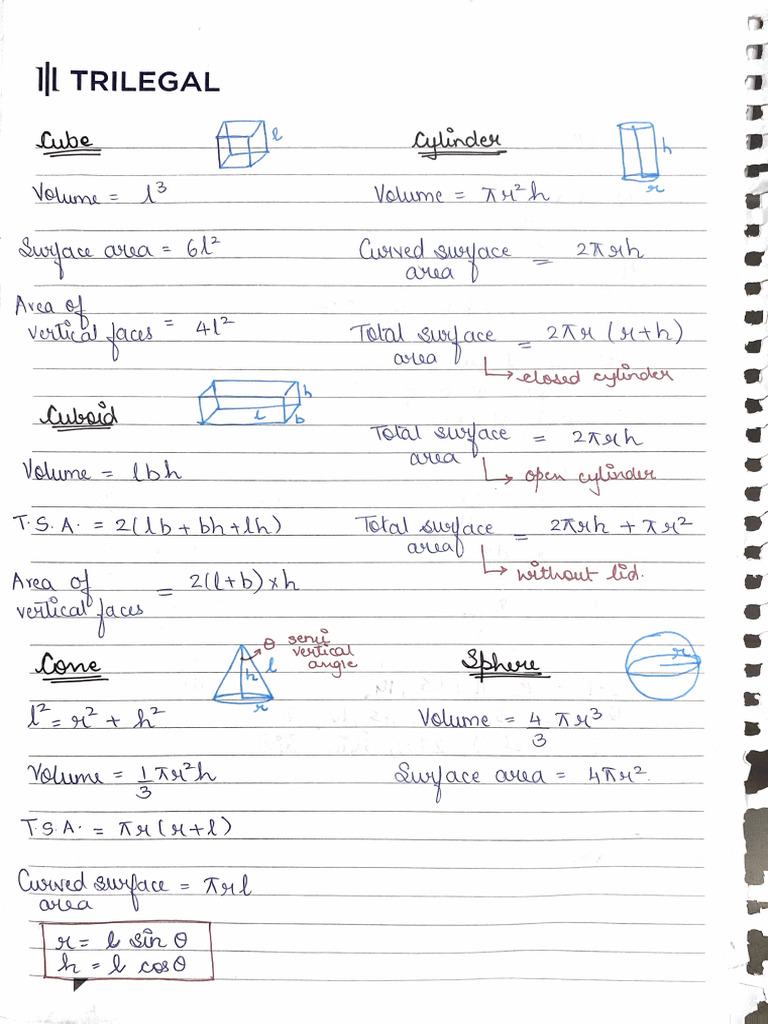 TRILEGAL
Cube
l
Volume = l³
Surface area = 6l²
Area of
vertical faces = 4l²
Cuboid
h
l
b
Volume = lbh
T.S.A. = 2(lb + bh + lh)
Area of
vertical faces = 2(l+b)×h
Cone
θ semi
vertical
angle
l
h
r
l² = r² + h²
Volume = 1/3 πr²h
T.S.A. = πr(r+l)
Curved surface = πrl
area
r = l sin θ
h = l cosθ
Cylinder
h
r
Volume = πr²h
Curved surface = 2πrh
area
Total surface = 2πr (r+h)
area
closed cylinder
Total surface = 2πrh
area
open cylinder
Total surface = 2πrh + πr²
area
without lid.
Sphere
r
Volume = 4/3 πr³
Surface area = 4πr².